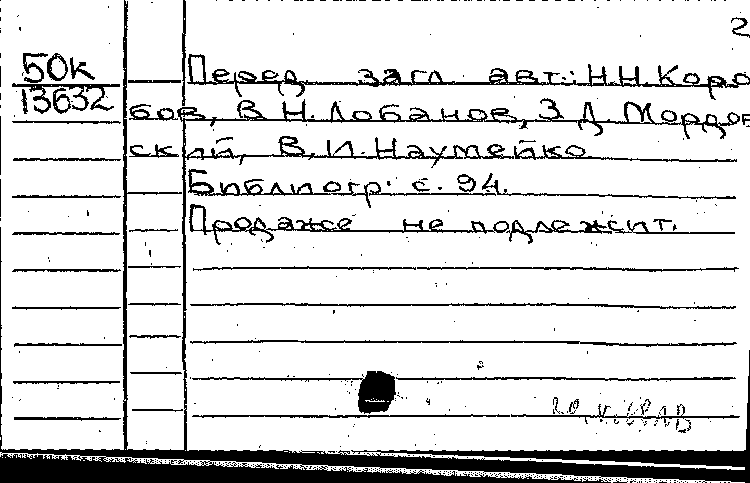 2
50к
13632
Перед загл. авт.: Н.Н. Коро
бов, В.Н. Лобанов, З.Д. Мордов
ский, В.И. Наумейко
Библиогр: с. 94.
Продаже не подлежит.